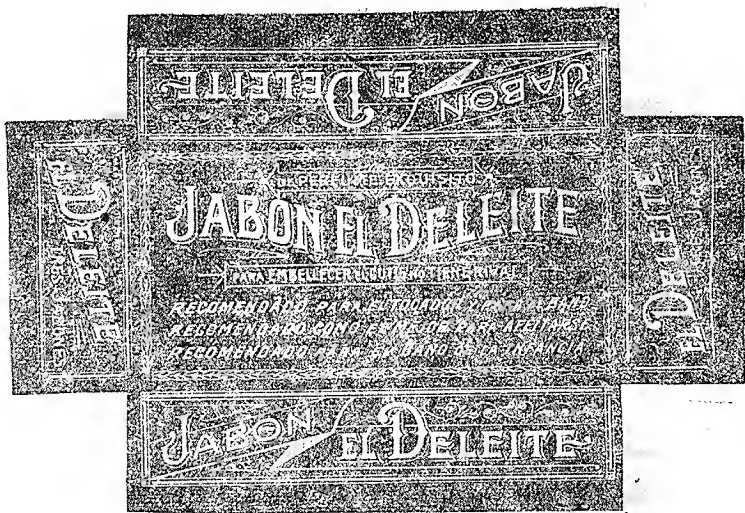 JABON EL DELEITE
EL DELEITE
DE PERFUME EXQUISITO
JABON EL DELEITE
PARA EMBELLECER EL CUTIS NO TIENE RIVAL
RECOMENDADO PARA EL TOCADOR Y
RECOMENDADO COMO EL MEJOR PARA AFEITARSE
RECOMENDADO PARA EL BAÑO DE LA INFANCIA
EL DELEITE
JABON EL DELEITE